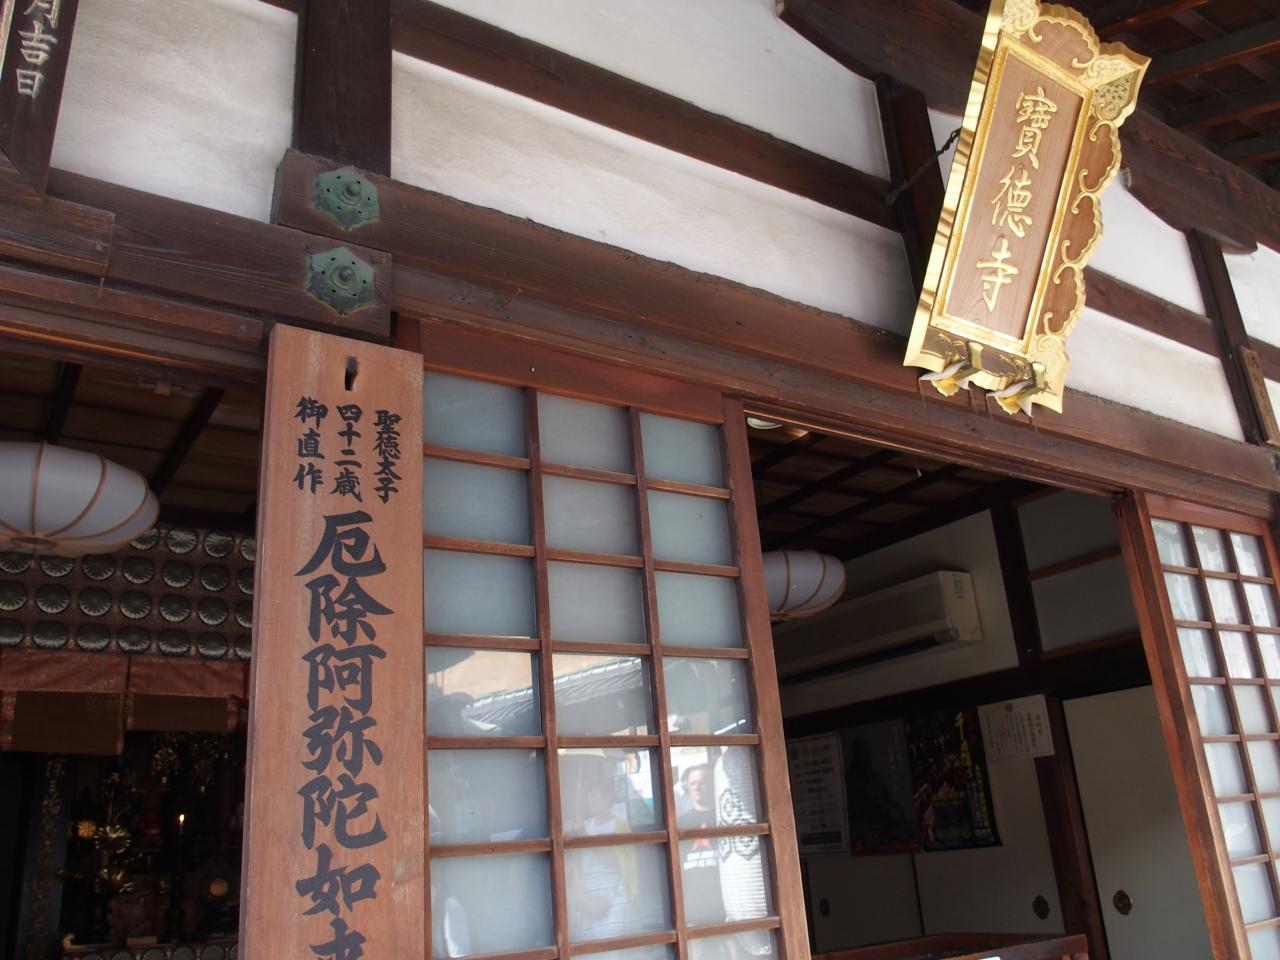 月吉日
寶徳寺
聖徳太子
四十二歳
御直作
厄除阿弥陀如来